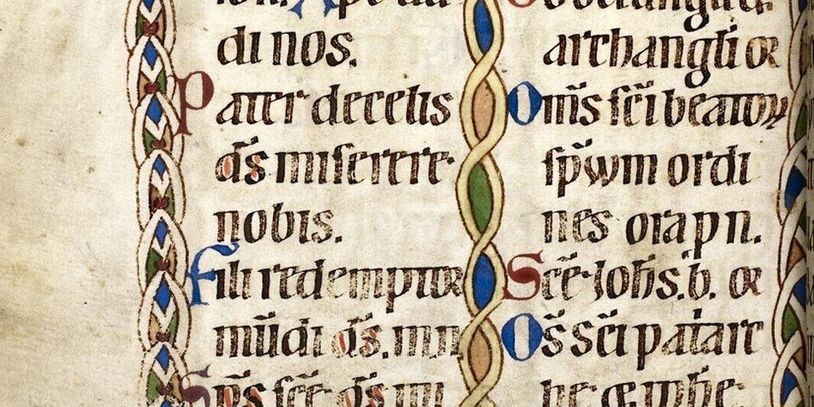 di nos.
Pater de celis
d̄s miserere
nobis.
Fili redemptor
mūdi d̄s. m n
Sp̄s sc̄e d̄s m
archangl̄i or
Om̄s sc̄i beatoꝝ
sp̄uum ordi
nes ora p n.
Sc̄e Ioh̄s. b. or
Om̄s sc̄i patarc